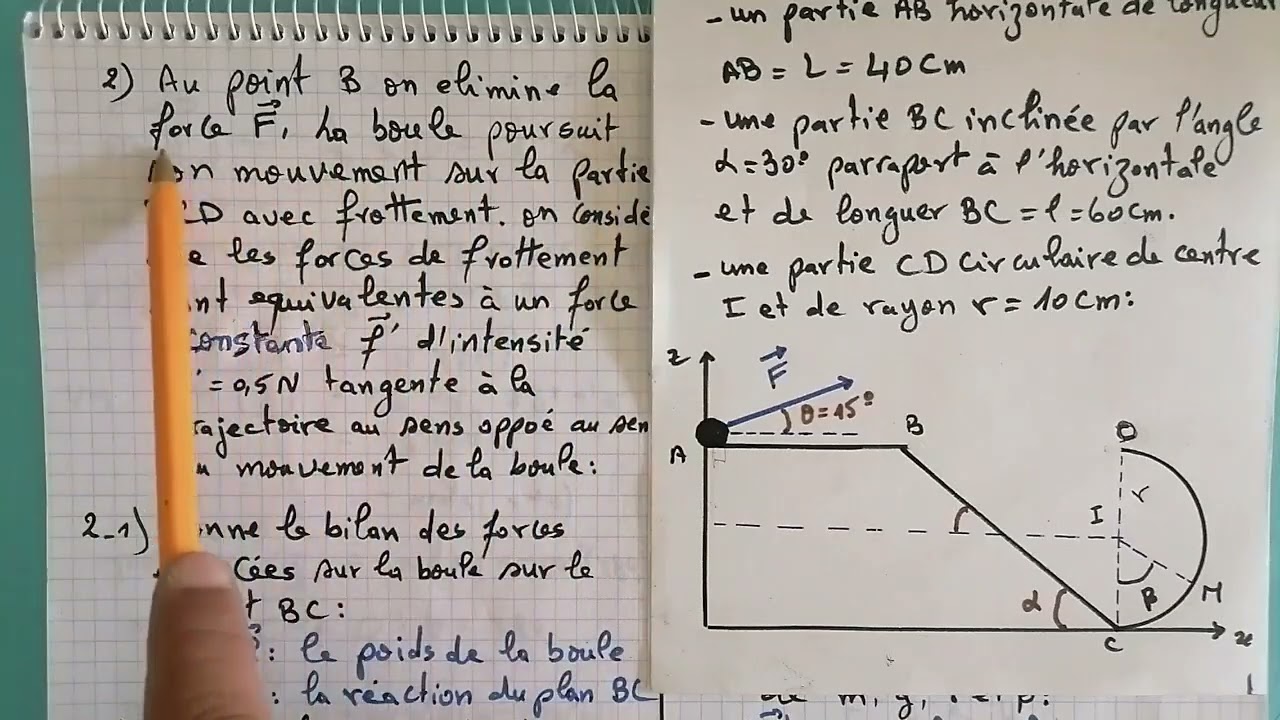 2) Au point B on elimine la
force F⃗, La boule poursuit
mouvement sur la partie
CD avec frottement. on considè
les forces de frottement
equivalentes à un force
constante f⃗' d'intensité
' = 0,5N tangente à la
rajectoire au sens oppoé au sen
mouvement de la boule:
2-1) onne le bilan des forces
cées sur la boule sur le
t BC:
: le poids de la boule
: la réaction du plan BC
- un partie AB horizontale de longueur
AB = L = 40cm
- une partie BC inclinée par l'angle
α=30° parraport à l'horizontale
et de longuer BC = l = 60cm.
- une partie CD Circulaire de centre
I et de rayon r = 10cm:
z
F⃗
θ=45°
A
B
D
r
I
β
M
α
C
x